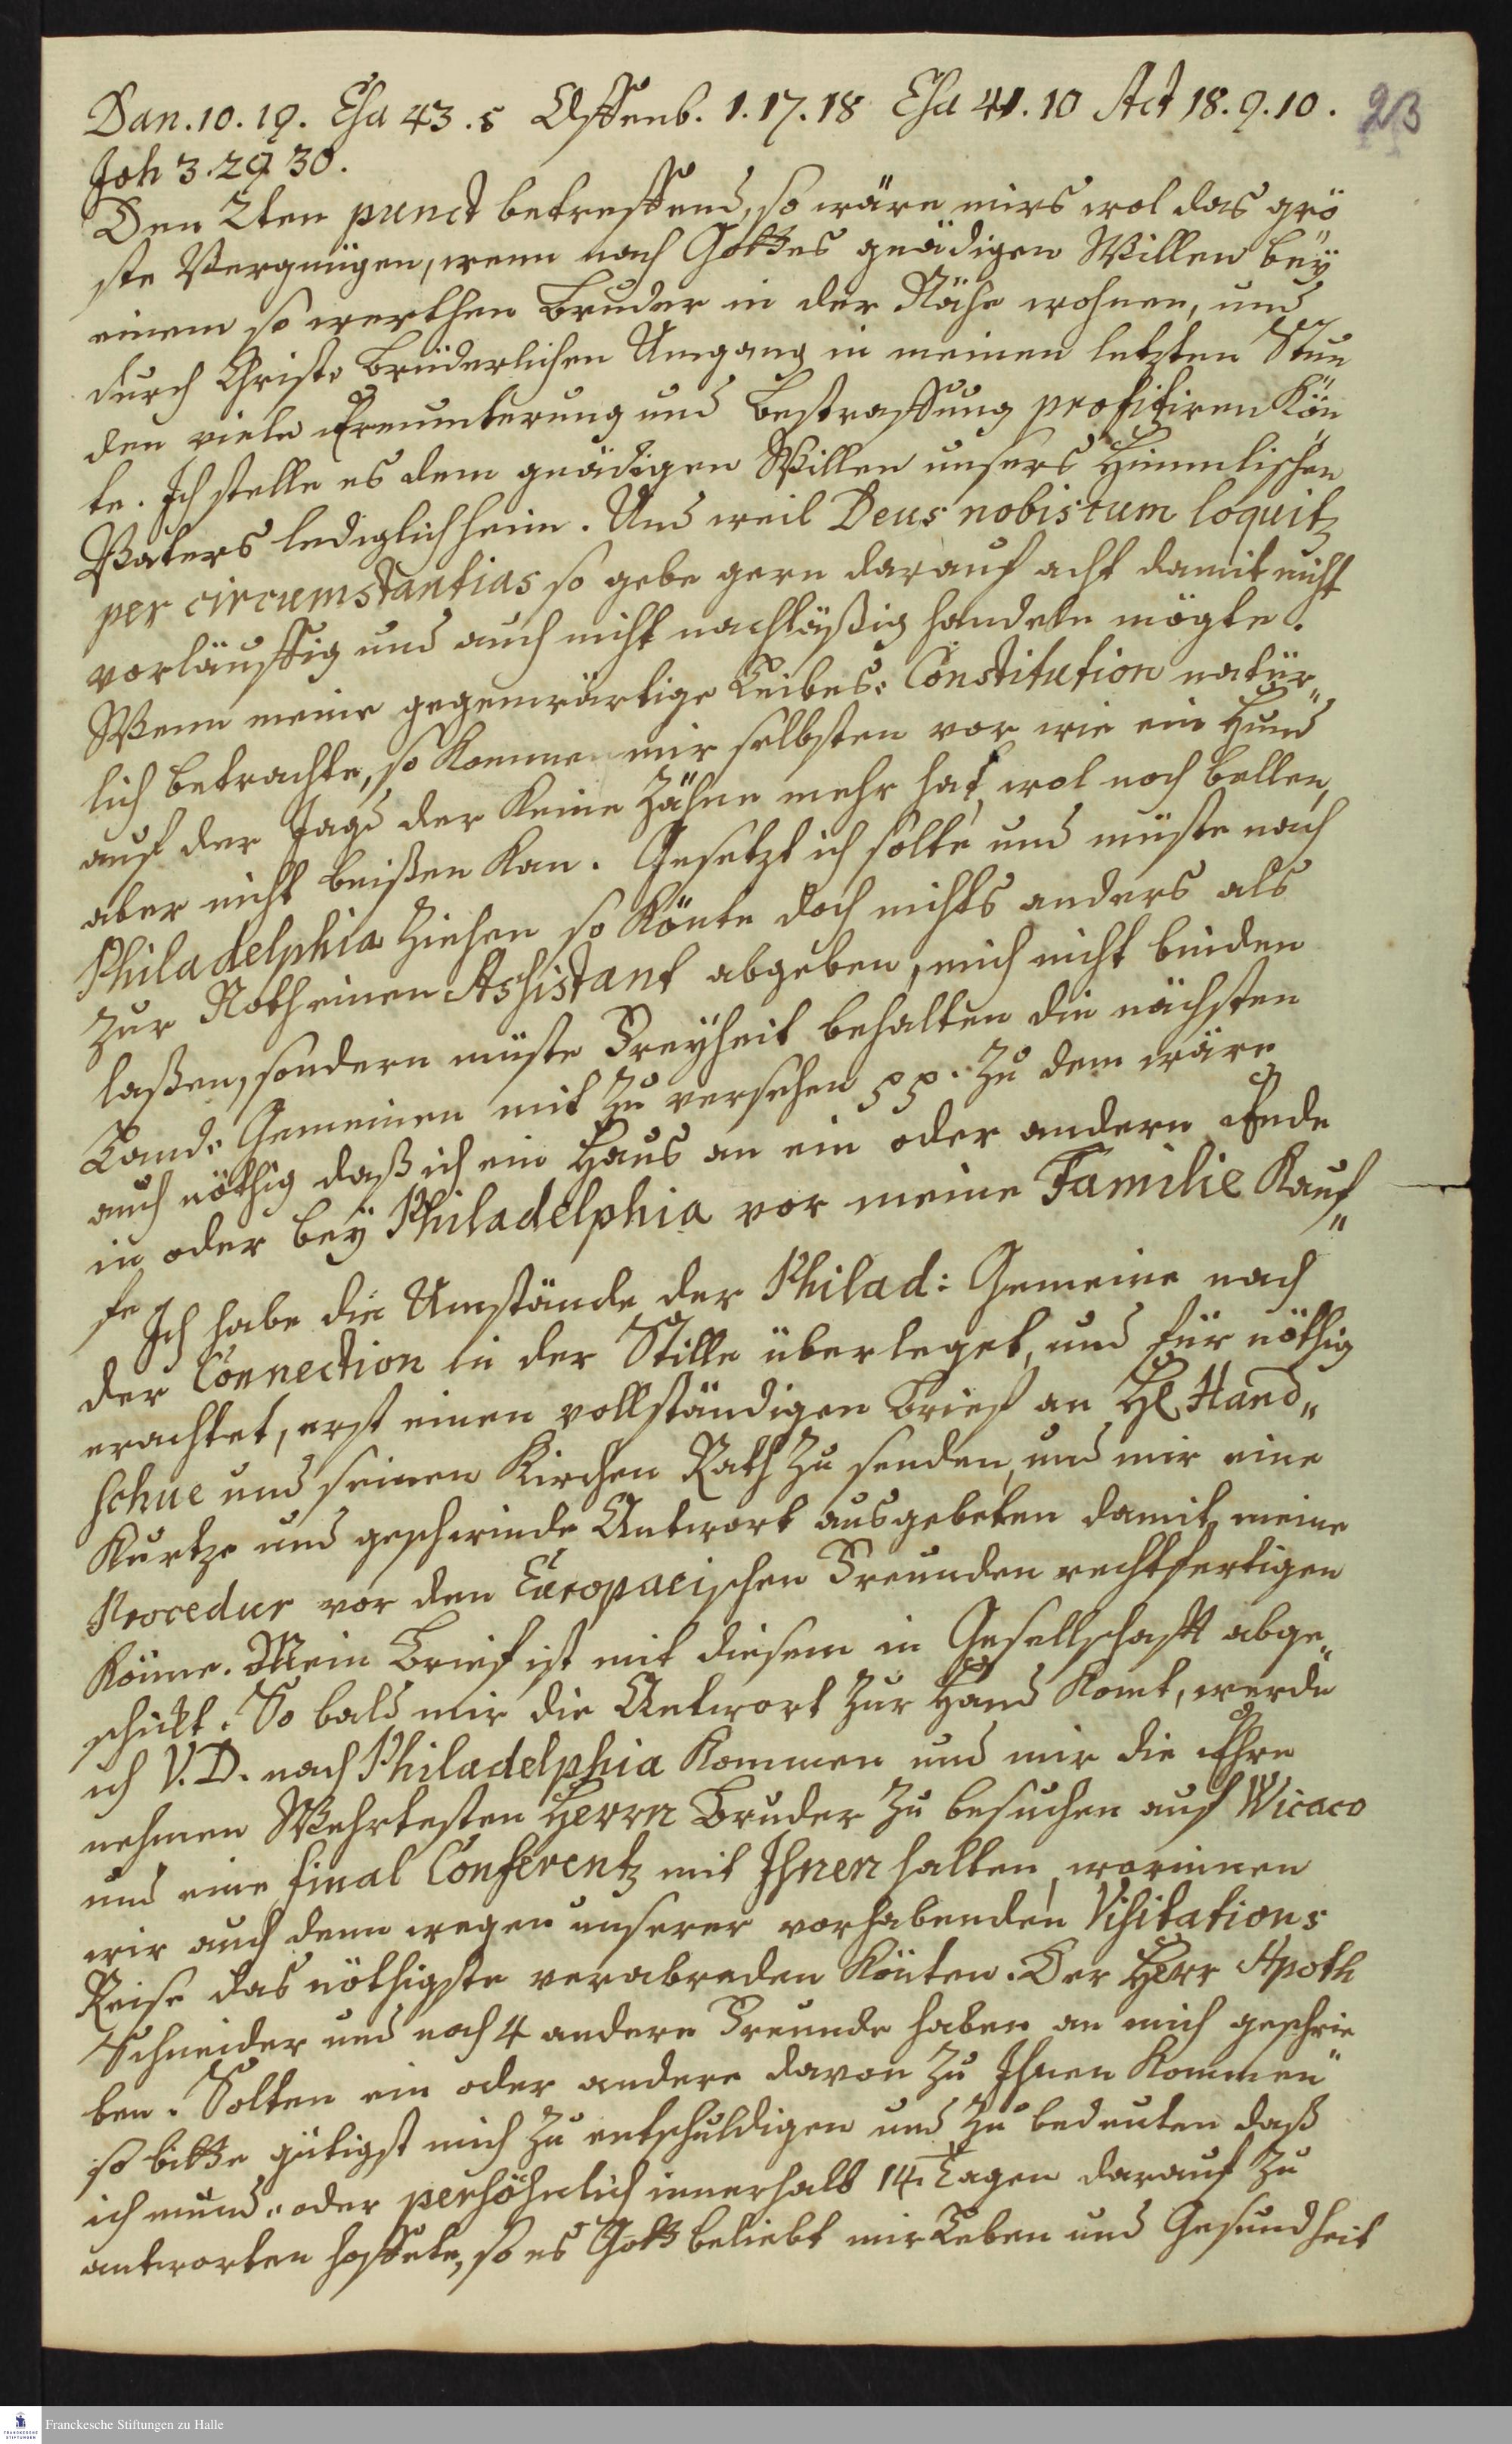 Dan. 10. 19. Esa 43. 5 Offenb. 1. 17. 18 Esa 41. 10 Act 18. 9. 10.
23
Joh 3. 29 30.
Den 2ten punct betreffend, so wäre mirs wol das grö
ste Vergnügen, wenn nach Gottes gnädigen Willen beÿ
einem so werthen Bruder in der Nähe wohnen, und
durch Christ. Brüderlichen Umgang in meinen letzten Stun
den viele Ermunterung und Bestraffung profitiren kön
te. Ich stelle es dem gnädigen Willen unsers Himmlischen
Vaters lediglich heim. Und weil Deus nobiscum loquitur
per circumstantias so gebe gern darauf acht damit nicht
vorläuffig und auch nicht nachläßig handeln mögte.
Wenn meine gegenwärtige Leibes: Constitution natür"
lich betrachte, so komme mir selbsten vor wie ein Hund
auf der Jagd der keine Zähne mehr hat, wol noch bellen,
aber nicht beißen kan. Gesetzt ich solte und müste nach
Philadelphia ziehen so könte doch nichts anders als
zur Noth einen Assistant abgeben, mich nicht binden
laßen, sondern müste Freÿheit behalten die nächsten
Land: Gemeinen mit zu versehen pp. Zu dem wäre
auch nöthig daß ich ein Haus an ein oder andern Ende
in oder beÿ Philadelphia vor meine Familie kauf"
fe
Ich habe die Umstände der Philad: Gemeine nach
der Connection in der Stille überleget, und für nöthig
erachtet, erst einen vollständigen Brief an H. Hand"
schue und seinen Kirchen Rath zu senden, und mir eine
kurtze und geschwinde Antwort ausgebeten damit meine
Procedur vor den Europaeischen Freunden rechtfertigen
könne. Mein Brief ist mit diesem in Gesellschafft abge"
schickt. So bald mir die Antwort zur Hand komt, werde
ich V. D. nach Philadelphia kommen und mir die Ehre
nehmen Wehrtesten Herrn Bruder zu besuchen auf Wicaco
und eine final Conferentz mit Ihnen halten, worinnen
wir auch denn wegen unserer vorhabenden Visitations
Reise das nöthigste verabreden könten. Der Herr Apoth
Schneider und noch 4 andere Freunde haben an mich geschrie
ben. Solten ein oder andere davon zu Ihnen kommen"
so bitte gütigst mich zu entschuldigen und zu bedeuten daß
ich mund: oder persöhnlich innerhalb 14. Tagen darauf zu
antworten hoffete, so es Gott beliebt mir Leben und Gesundheit
Franckesche Stiftungen zu Halle